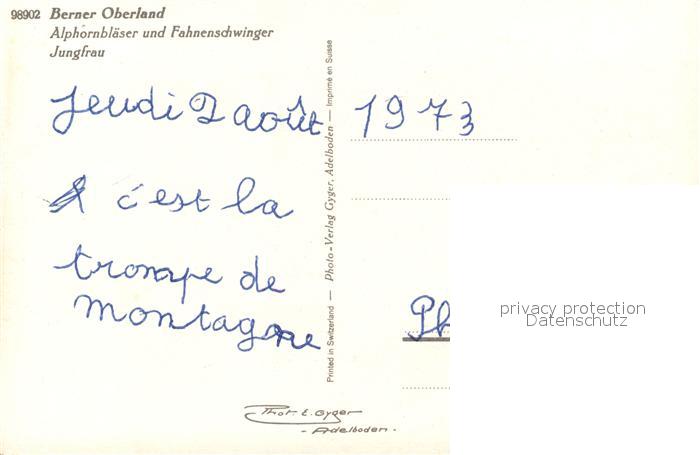 98902 Berner Oberland
Alphornbläser und Fahnenschwinger
Jungfrau
Jeudi 2 août 1973
c'est la
trompe de
montagne
Printed in Switzerland — Photo-Verlag Gyger, Adelboden — Imprimé en Suisse
Ph
privacy protection
Datenschutz
Phot. E. Gyger
- Adelboden -